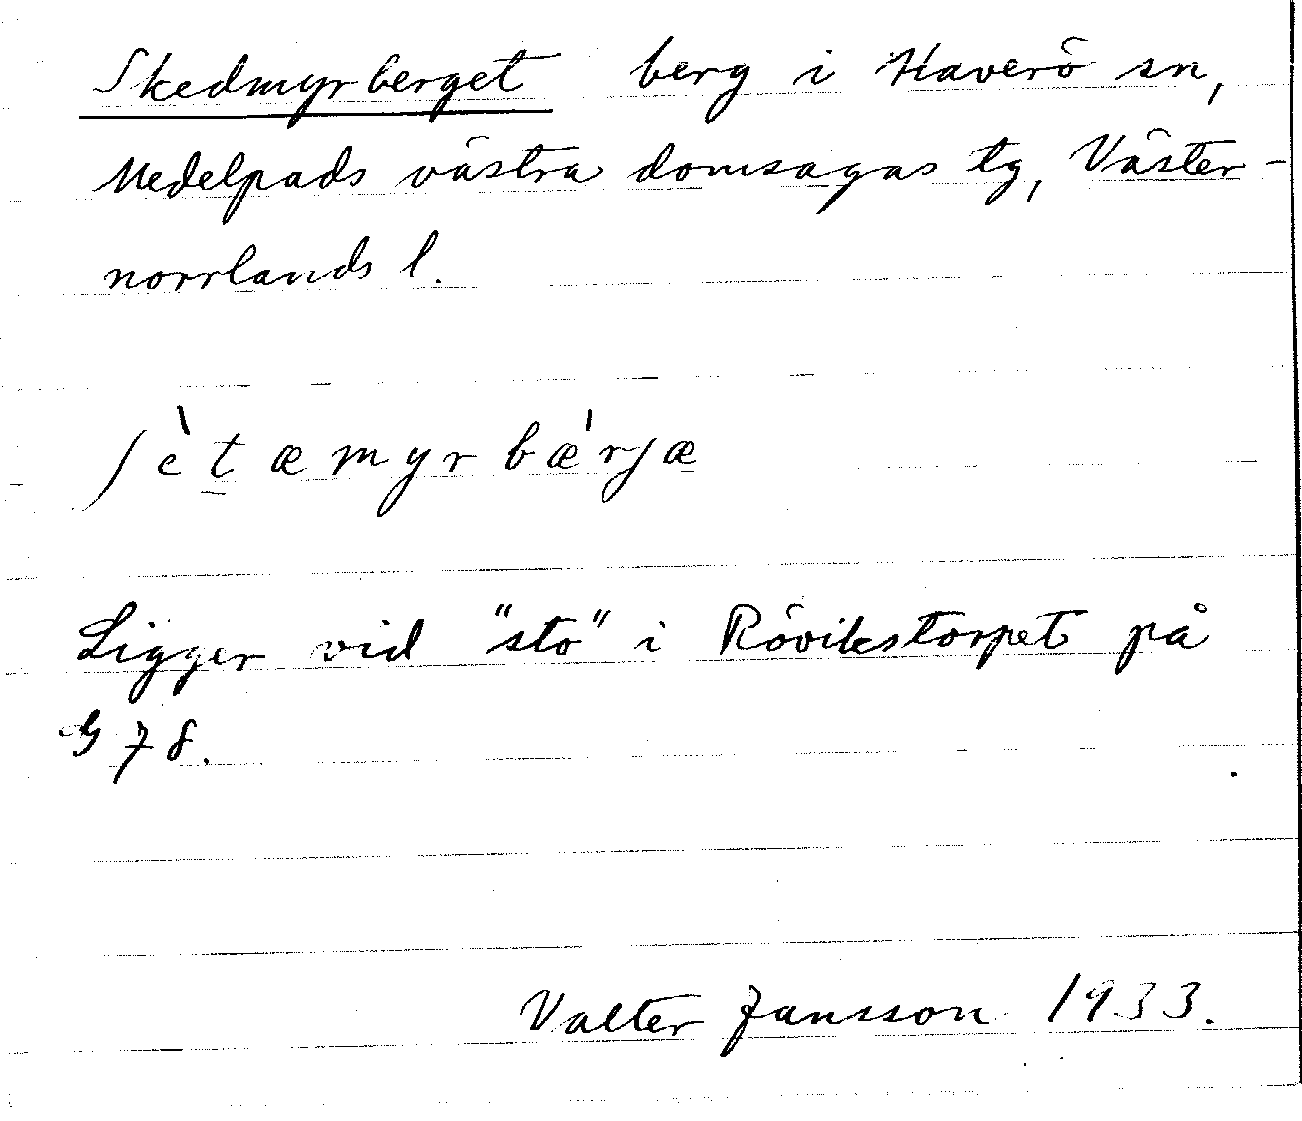 Skedmyrberget berg i Haverö sn,
Medelpads västra domsagas tg, Väster-
norrlands l.
ʃètæmyrbæ'rjæ
Ligger vid "sto" i Rövikstorpet på
G 78.
Valter Jansson 1933.